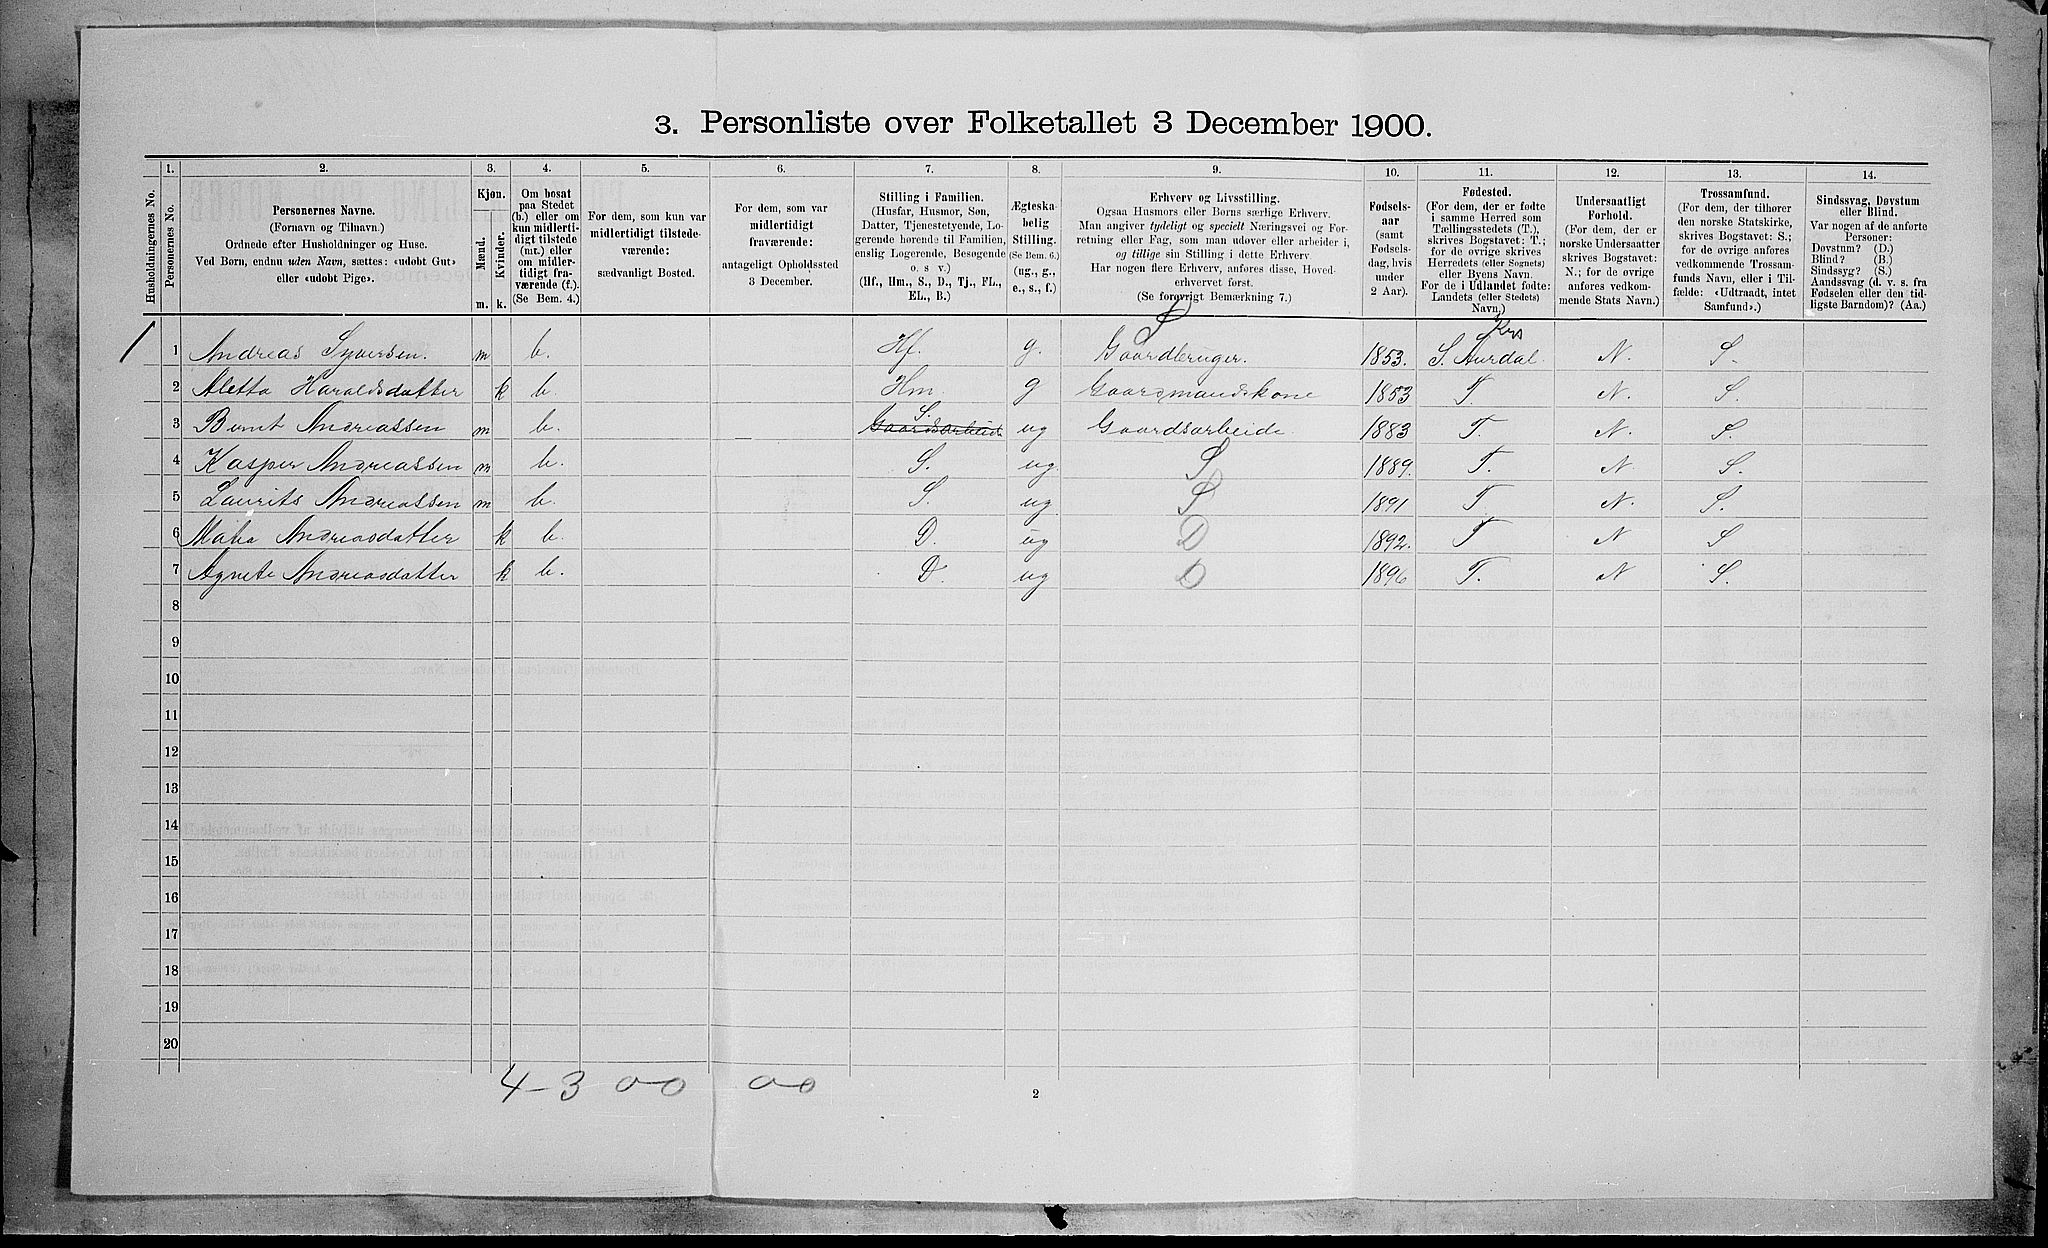 3. Personliste over Folketallet 3 December 1900.
1. 2. 3. 4. 5. 6. 7. 8. 9. 10. 11. 12. 13. 14.
Husholdningernes No.
Personernes No.
Personernes Navne.
(Fornavn og Tilnavn.)
Ordnede efter Husholdninger og Huse.
Ved Børn, endnu uden Navn, sættes: «udøbt Gut»
eller «udøbt Pige».
Kjøn.
Mænd.
Kvinder.
m. k.
Om bosat
paa Stedet
(b.) eller om
kun midlerti-
digt tilstede
(mt.) eller
om midler-
tidigt fra-
værende (f.).
(Se Bem. 4.)
For dem, som kun var
midlertidigt tilstede-
værende:
sædvanligt Bosted.
For dem, som var
midlertidigt
fraværende:
antageligt Opholdssted
3 December.
Stilling i Familien.
(Husfar, Husmor, Søn,
Datter, Tjenestetyende, Lo-
gerende hørende til Familien,
enslig Logerende, Besøgende
o. s v.)
(Hf., Hm., S., D., Tj., FL.,
EL., B.)
Ægteska-
belig
Stilling.
(Se Bem. 6.)
(ug., g.,
e., s., f.)
Erhverv og Livsstilling.
Ogsaa Husmors eller Børns særlige Erhverv.
Man angiver tydeligt og specielt Næringsvei og For-
retning eller Fag, som man udøver eller arbeider i,
og tillige sin Stilling i dette Erhverv.
Har nogen flere Erhverv, anføres disse, Hoved-
erhvervet først.
(Se forøvrigt Bemærkning 7.)
Fødsels-
aar
(samt
Fødsels-
dag, hvis
under
2 Aar).
Fødested.
(For dem, der er fødte
i samme Herred som
Tællingsstedets (T.),
skrives Bogstavet: T.;
for de øvrige skrives
Herredets (eller Sognets)
eller Byens Navn.
For de i Udlandet fødte:
Landets (eller Stedets)
Navn.)
Undersaatligt
Forhold.
(For dem, der er
norske Undersaatter
skrives Bogstavet:
N.; for de øvrige
anføres vedkom-
mende Stats Navn.)
Trossamfund.
(For dem, der tilhører
den norske Statskirke,
skrives Bogstavet: S.;
for de øvrige anføres
vedkommende Trossam-
funds Navn, eller i Til-
fælde: «Udtraadt, intet
Samfund».)
Sindssvag, Døvstum
eller Blind.
Var nogen af de anførte
Personer:
Døvstum? (D.)
Blind? (B.)
Sindssyg? (S.)
Aandssvag (d. v. s. fra
Fødselen eller den tid-
ligste Barndom)? (Aa.)
1 1 Andreas Syversen. m b. Hf. g. S Gaardbruger. 1853. S. Aurdal. N. S.
2 Aletta Haraldsdatter k b. Hm g Gaardmandskone 1853 T. N. S.
3 Bernt Andreassen m b. Gaardsarbeide S. ug Gaardsarbeide. 1883 T. N. S.
4 Kasper Andreassen m b. S. ug. S 1889. T. N. S.
5 Laurits Andreassen m b. S. ug S 1891 T N. S.
6 Andreasdatter k b. D. ug D 1892. T N S
7 Agnete Andreasdatter k b. D. ug D 1896 T. N S.
8
9
10
11
12
13
14
15
16
17
18
19
20
4-3 0-0 0-0
2